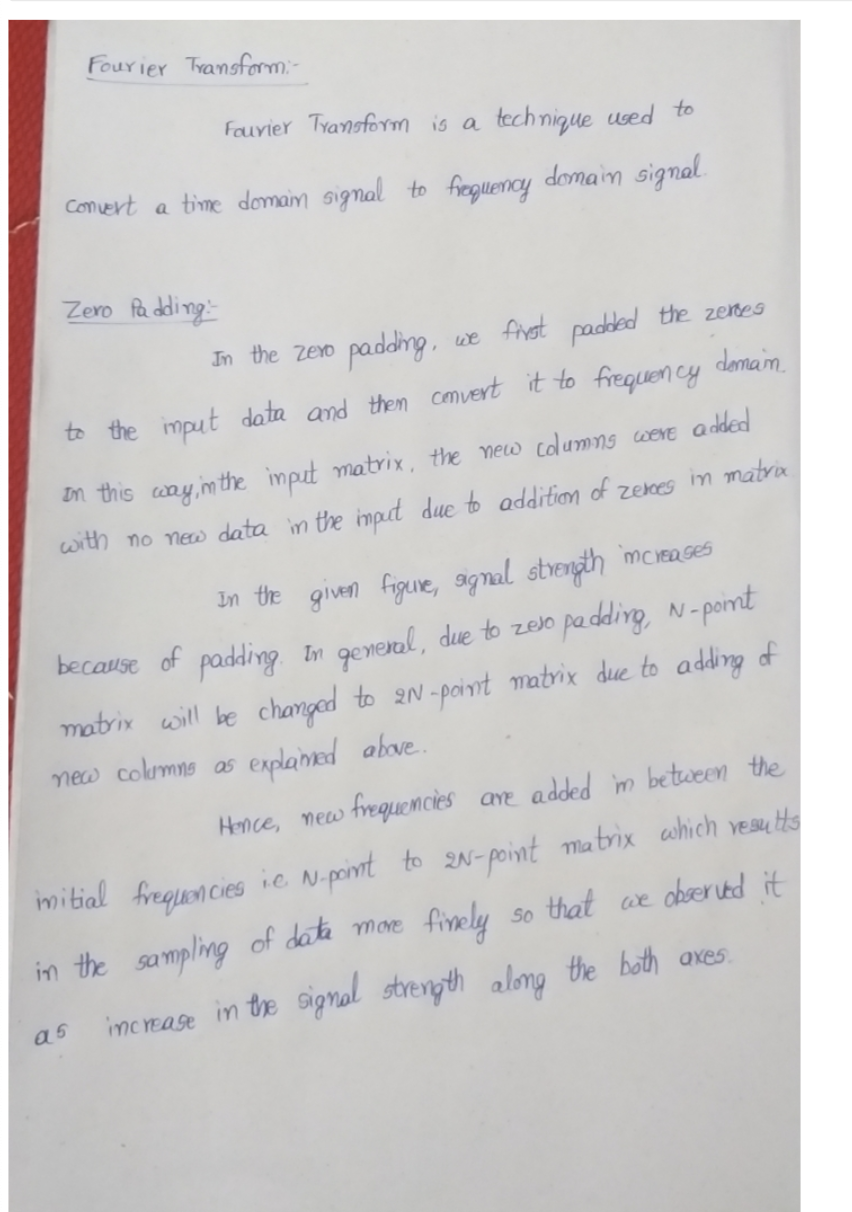 Fourier Transform:-
Fourier Transform is a technique used to
convert a time domain signal to frequency domain signal.
Zero Padding:-
In the zero padding, we first padded the zeroes
to the input data and then convert it to frequency domain.
In this way, in the input matrix, the new columns were added
with no new data in the input due to addition of zeroes in matrix
In the given figure, signal strength increases
because of padding. In general, due to zero padding, N-point
matrix will be changed to 2N-point matrix due to adding of
new columns as explained above.
Hence, new frequencies are added in between the
initial frequencies i.e. N-point to 2N-point matrix which results
in the sampling of data more finely so that we observed it
as increase in the signal strength along the both axes.